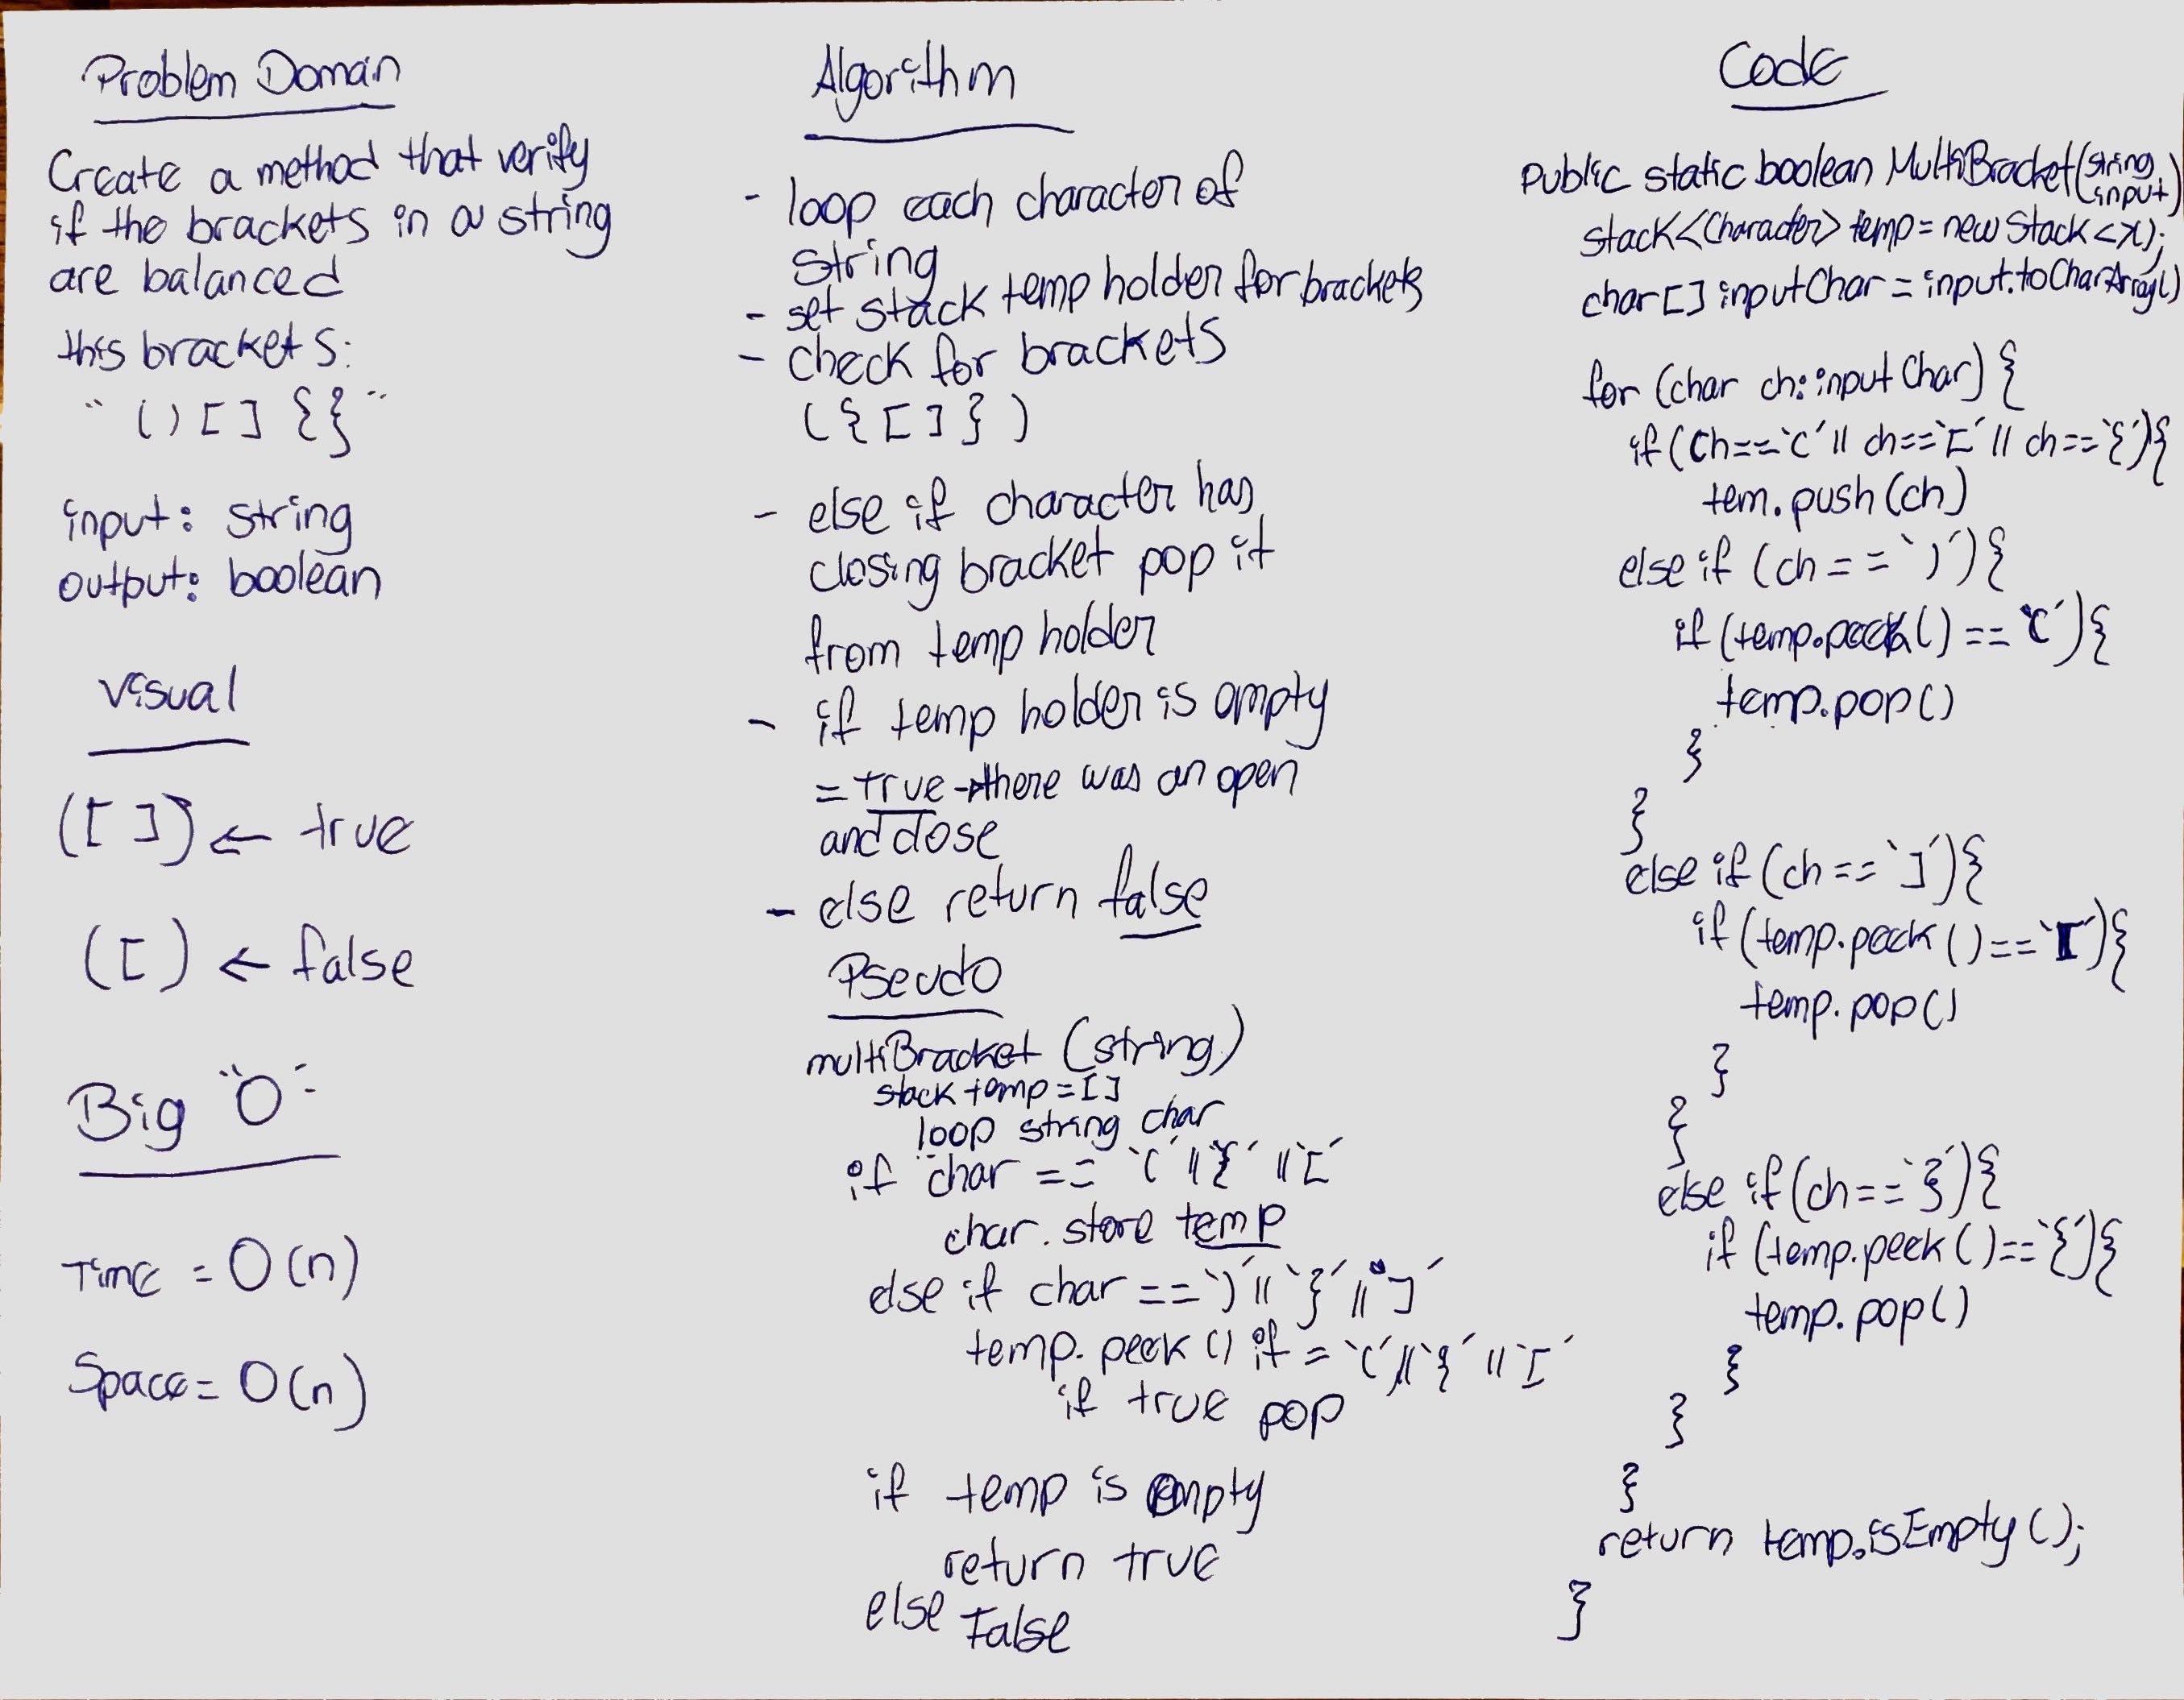 Problem Domain
Create a method that verify
if the brackets in a string
are balanced
this brackets:
" ( ) [ ] { } "
input: string
output: boolean
visual
( [ ] ) ← true
( [ ) ← false
Big "O"
Time = O(n)
Space = O(n)
Algorithm
- loop each character of
string
- set stack temp holder for brackets
- check for brackets
( { [ ] } )
- else if character has
closing bracket pop it
from temp holder
- if temp holder is empty
= true → there was an open
and close
- else return false
Pseudo
multiBracket (string)
stack temp = [ ]
loop string char
if char == '(' || '{' || '['
char. store temp
else if char == ')' || '}' || ']'
temp. peek () if = '(' || '}' || '['
if true pop
if temp is empty
return true
else False
Code
public static boolean MultiBracket(string
input)
stack<Character> temp = new Stack<>();
char[] inputChar = input.toCharArray()
for (char ch: inputChar) {
if (ch == '(' || ch == '[' || ch == '{'){
tem.push(ch)
else if (ch == ')'){
if (temp.peek() == '('){
temp.pop()
}
}
else if (ch == ']'){
if (temp.peek() == '['){
temp.pop()
}
}
else if (ch == '}'){
if (temp.peek() == '{'){
temp.pop()
}
}
}
return temp.isEmpty();
}